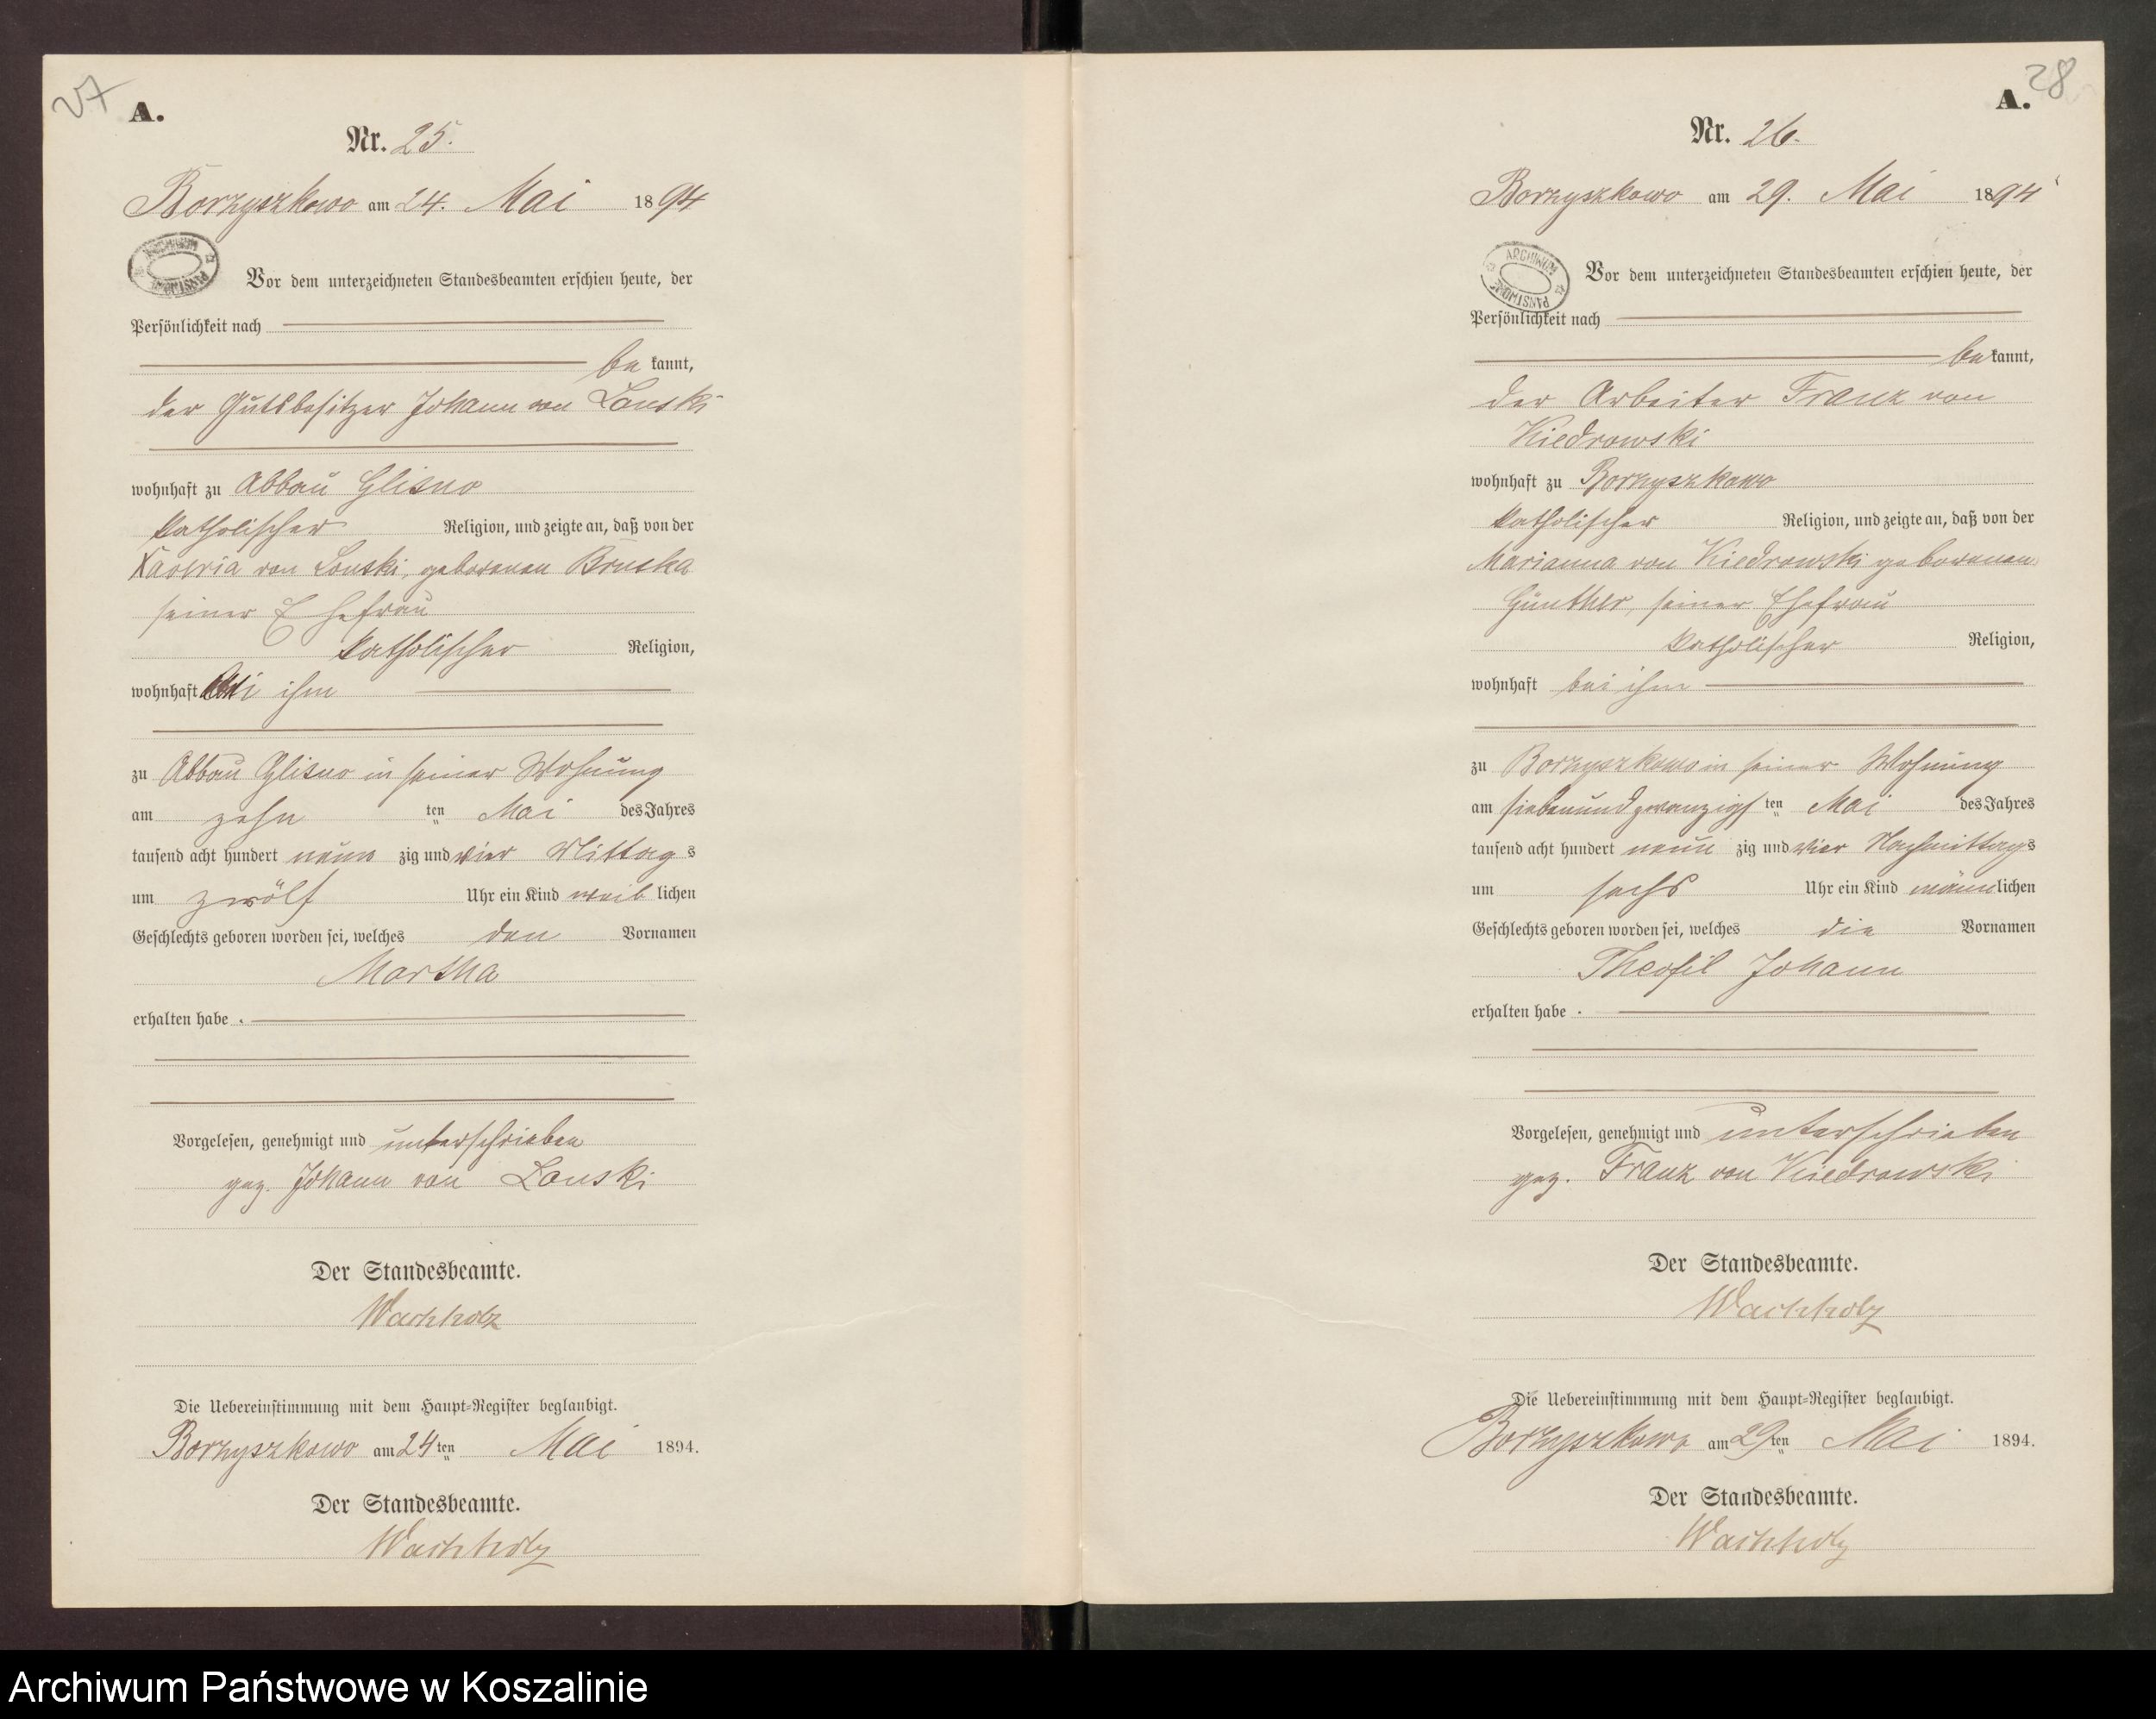 27
A.
Nr. 25.
Borzyszkowo am 24. Mai 1894
ARCHIWUM PAŃSTWOWE
Vor dem unterzeichneten Standesbeamten erschien heute, der
Persönlichkeit nach
be kannt,
der Gutsbesitzer Johann von Lonski
wohnhaft zu Abbau Glisno
katholischer Religion, und zeigte an, daß von der
Xaveria von Lonski, geborenen Bruska
seiner Ehefrau
katholischer Religion,
wohnhaft bei ihm
zu Abbau Glisno in seiner Wohnung
am zehn ten Mai des Jahres
tausend acht hundert neun zig und vier Mittag s
um zwölf Uhr ein Kind weib lichen
Geschlechts geboren worden sei, welches den Vornamen
Martha
erhalten habe .
Vorgelesen, genehmigt und unterschrieben
gez. Johann von Lonski
Der Standesbeamte.
Wachholz
Die Uebereinstimmung mit dem Haupt-Register beglaubigt.
Borzyszkowo am 24 ten Mai 1894.
Der Standesbeamte.
Wachholz
28
A.
Nr. 26.
Borzyszkowo am 29. Mai 1894
ARCHIWUM PAŃSTWOWE
Vor dem unterzeichneten Standesbeamten erschien heute, der
Persönlichkeit nach
be kannt,
der Arbeiter Franz von
Kiedrowski
wohnhaft zu Borzyszkowo
katholischer Religion, und zeigte an, daß von der
Marianna von Kiedrowski geborenen
Günther, seiner Ehefrau
katholischer Religion,
wohnhaft bei ihm
zu Borzyszkowo in seiner Wohnung
am siebenundzwanzigs ten Mai des Jahres
tausend acht hundert neun zig und vier Nachmittags
um sechs Uhr ein Kind männlichen
Geschlechts geboren worden sei, welches die Vornamen
Theofil Johann
erhalten habe .
Vorgelesen, genehmigt und unterschrieben
gez. Franz von Kiedrowski
Der Standesbeamte.
Wachholz
Die Uebereinstimmung mit dem Haupt-Register beglaubigt.
Borzyszkowo am 29 ten Mai 1894.
Der Standesbeamte.
Wachholz
Archiwum Państwowe w Koszalinie